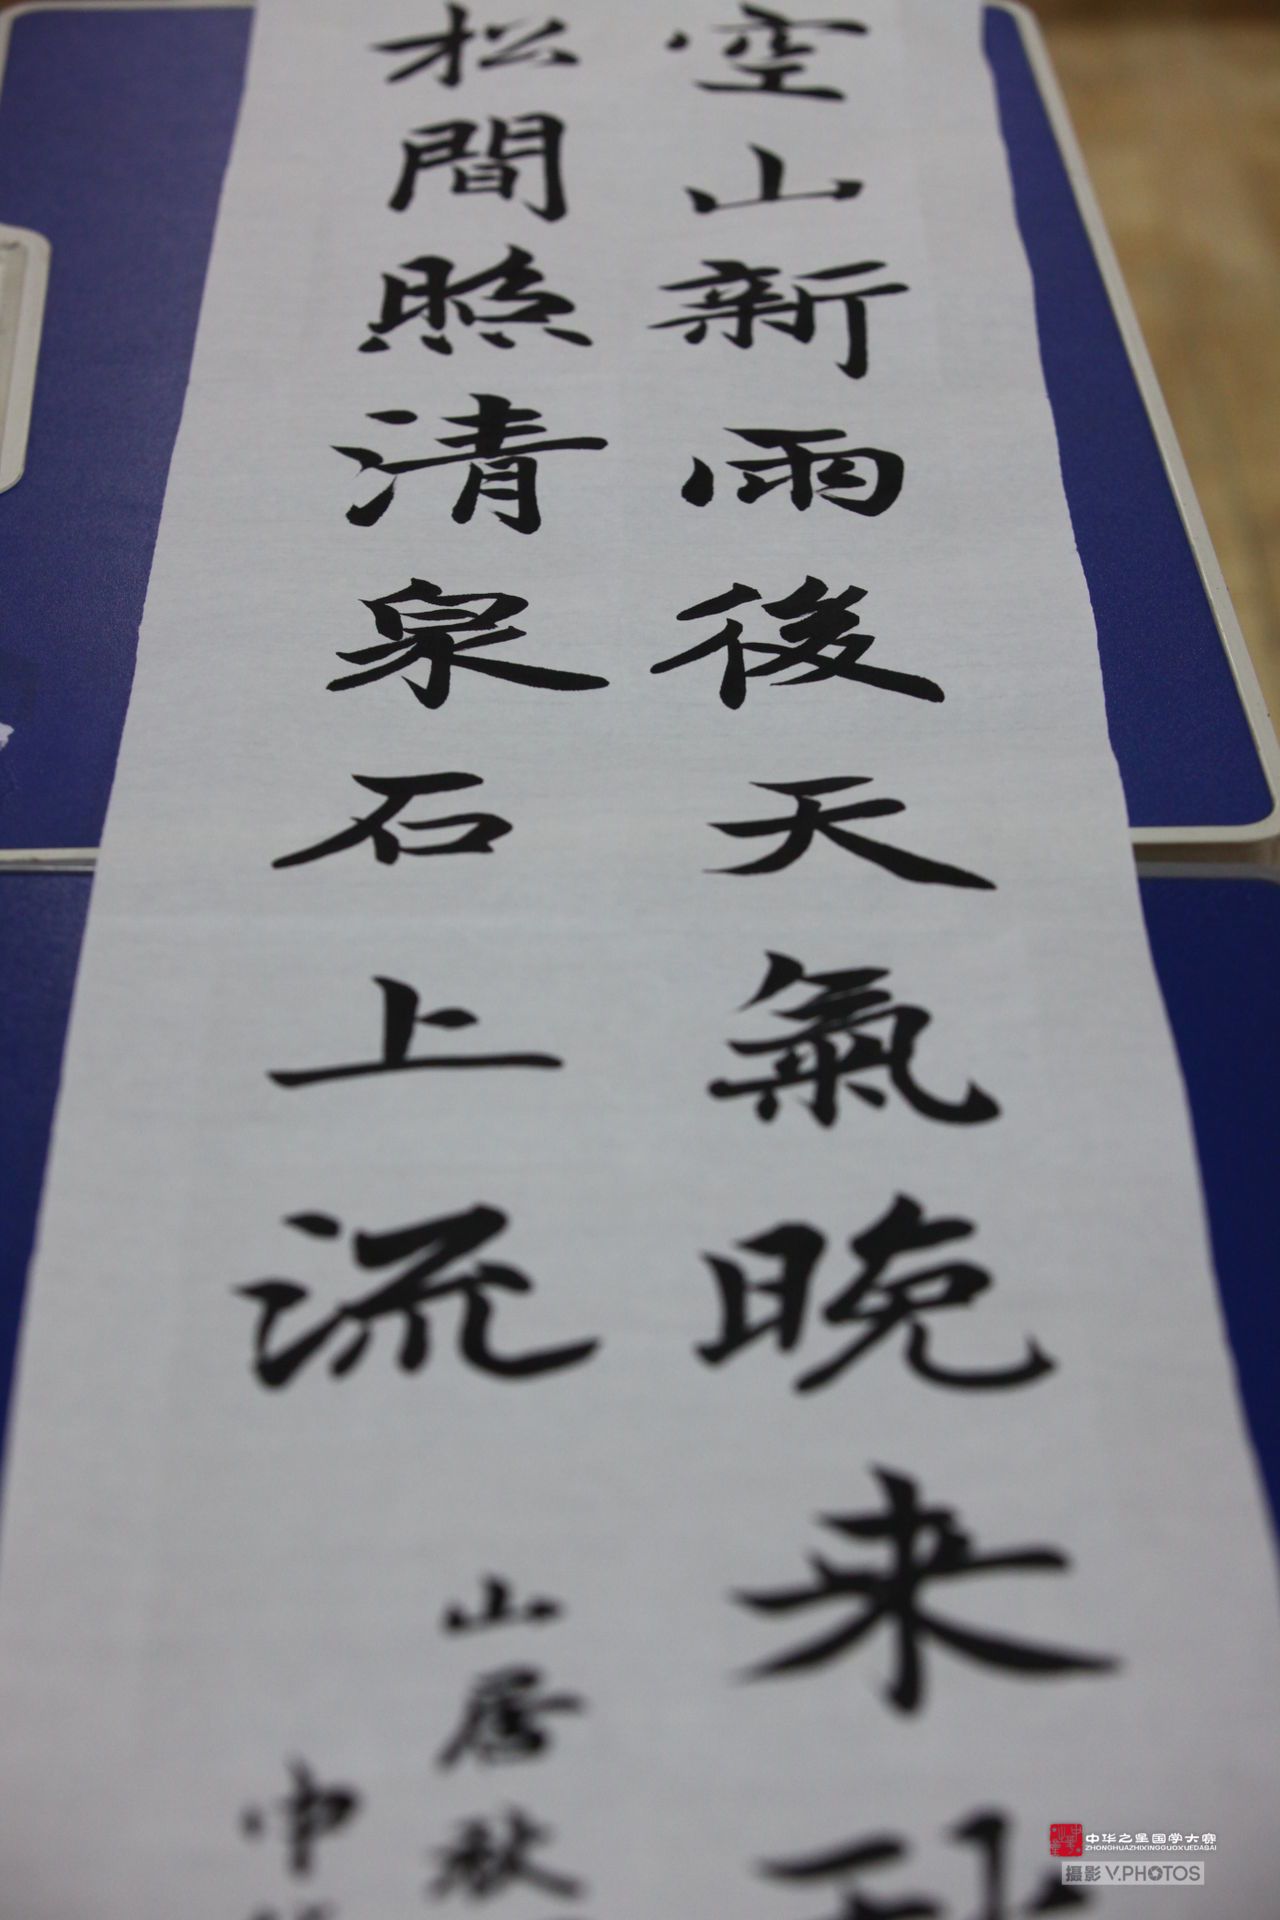 空山新雨後天氣晚来秋
松間照清泉石上流
山居秋
中
中华之星国学大赛
ZHONGHUAZHIXINGGUOXUEDASAI
摄影 V.PHOTOS